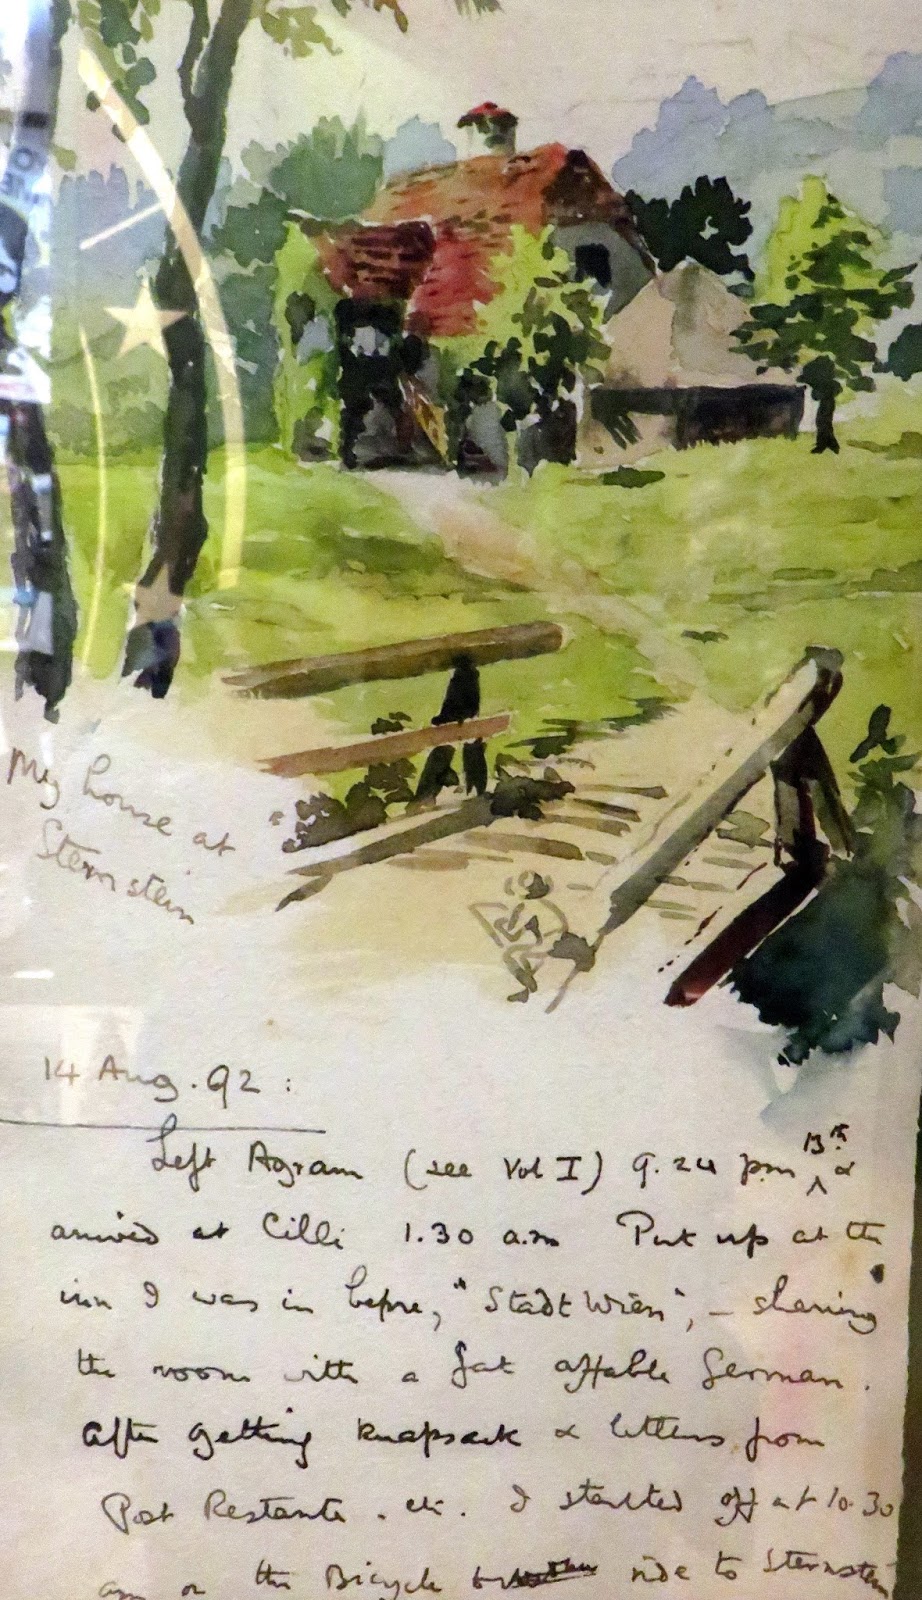 My house at
Sternstein
14 Aug. 92:
Left Agram (see Vol I) 9.24 pm 13th &
arrived at Cilli 1.30 a.m Put up at the
inn I was in before, "Stadt Wien", – sharing
the room with a fat affable German.
After getting knapsack & letters from
Post Restante . etc. I started off at 10.30
am on the Bicycle ride to Sternstein